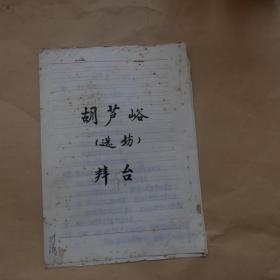 胡芦峪
(选场)
拜台